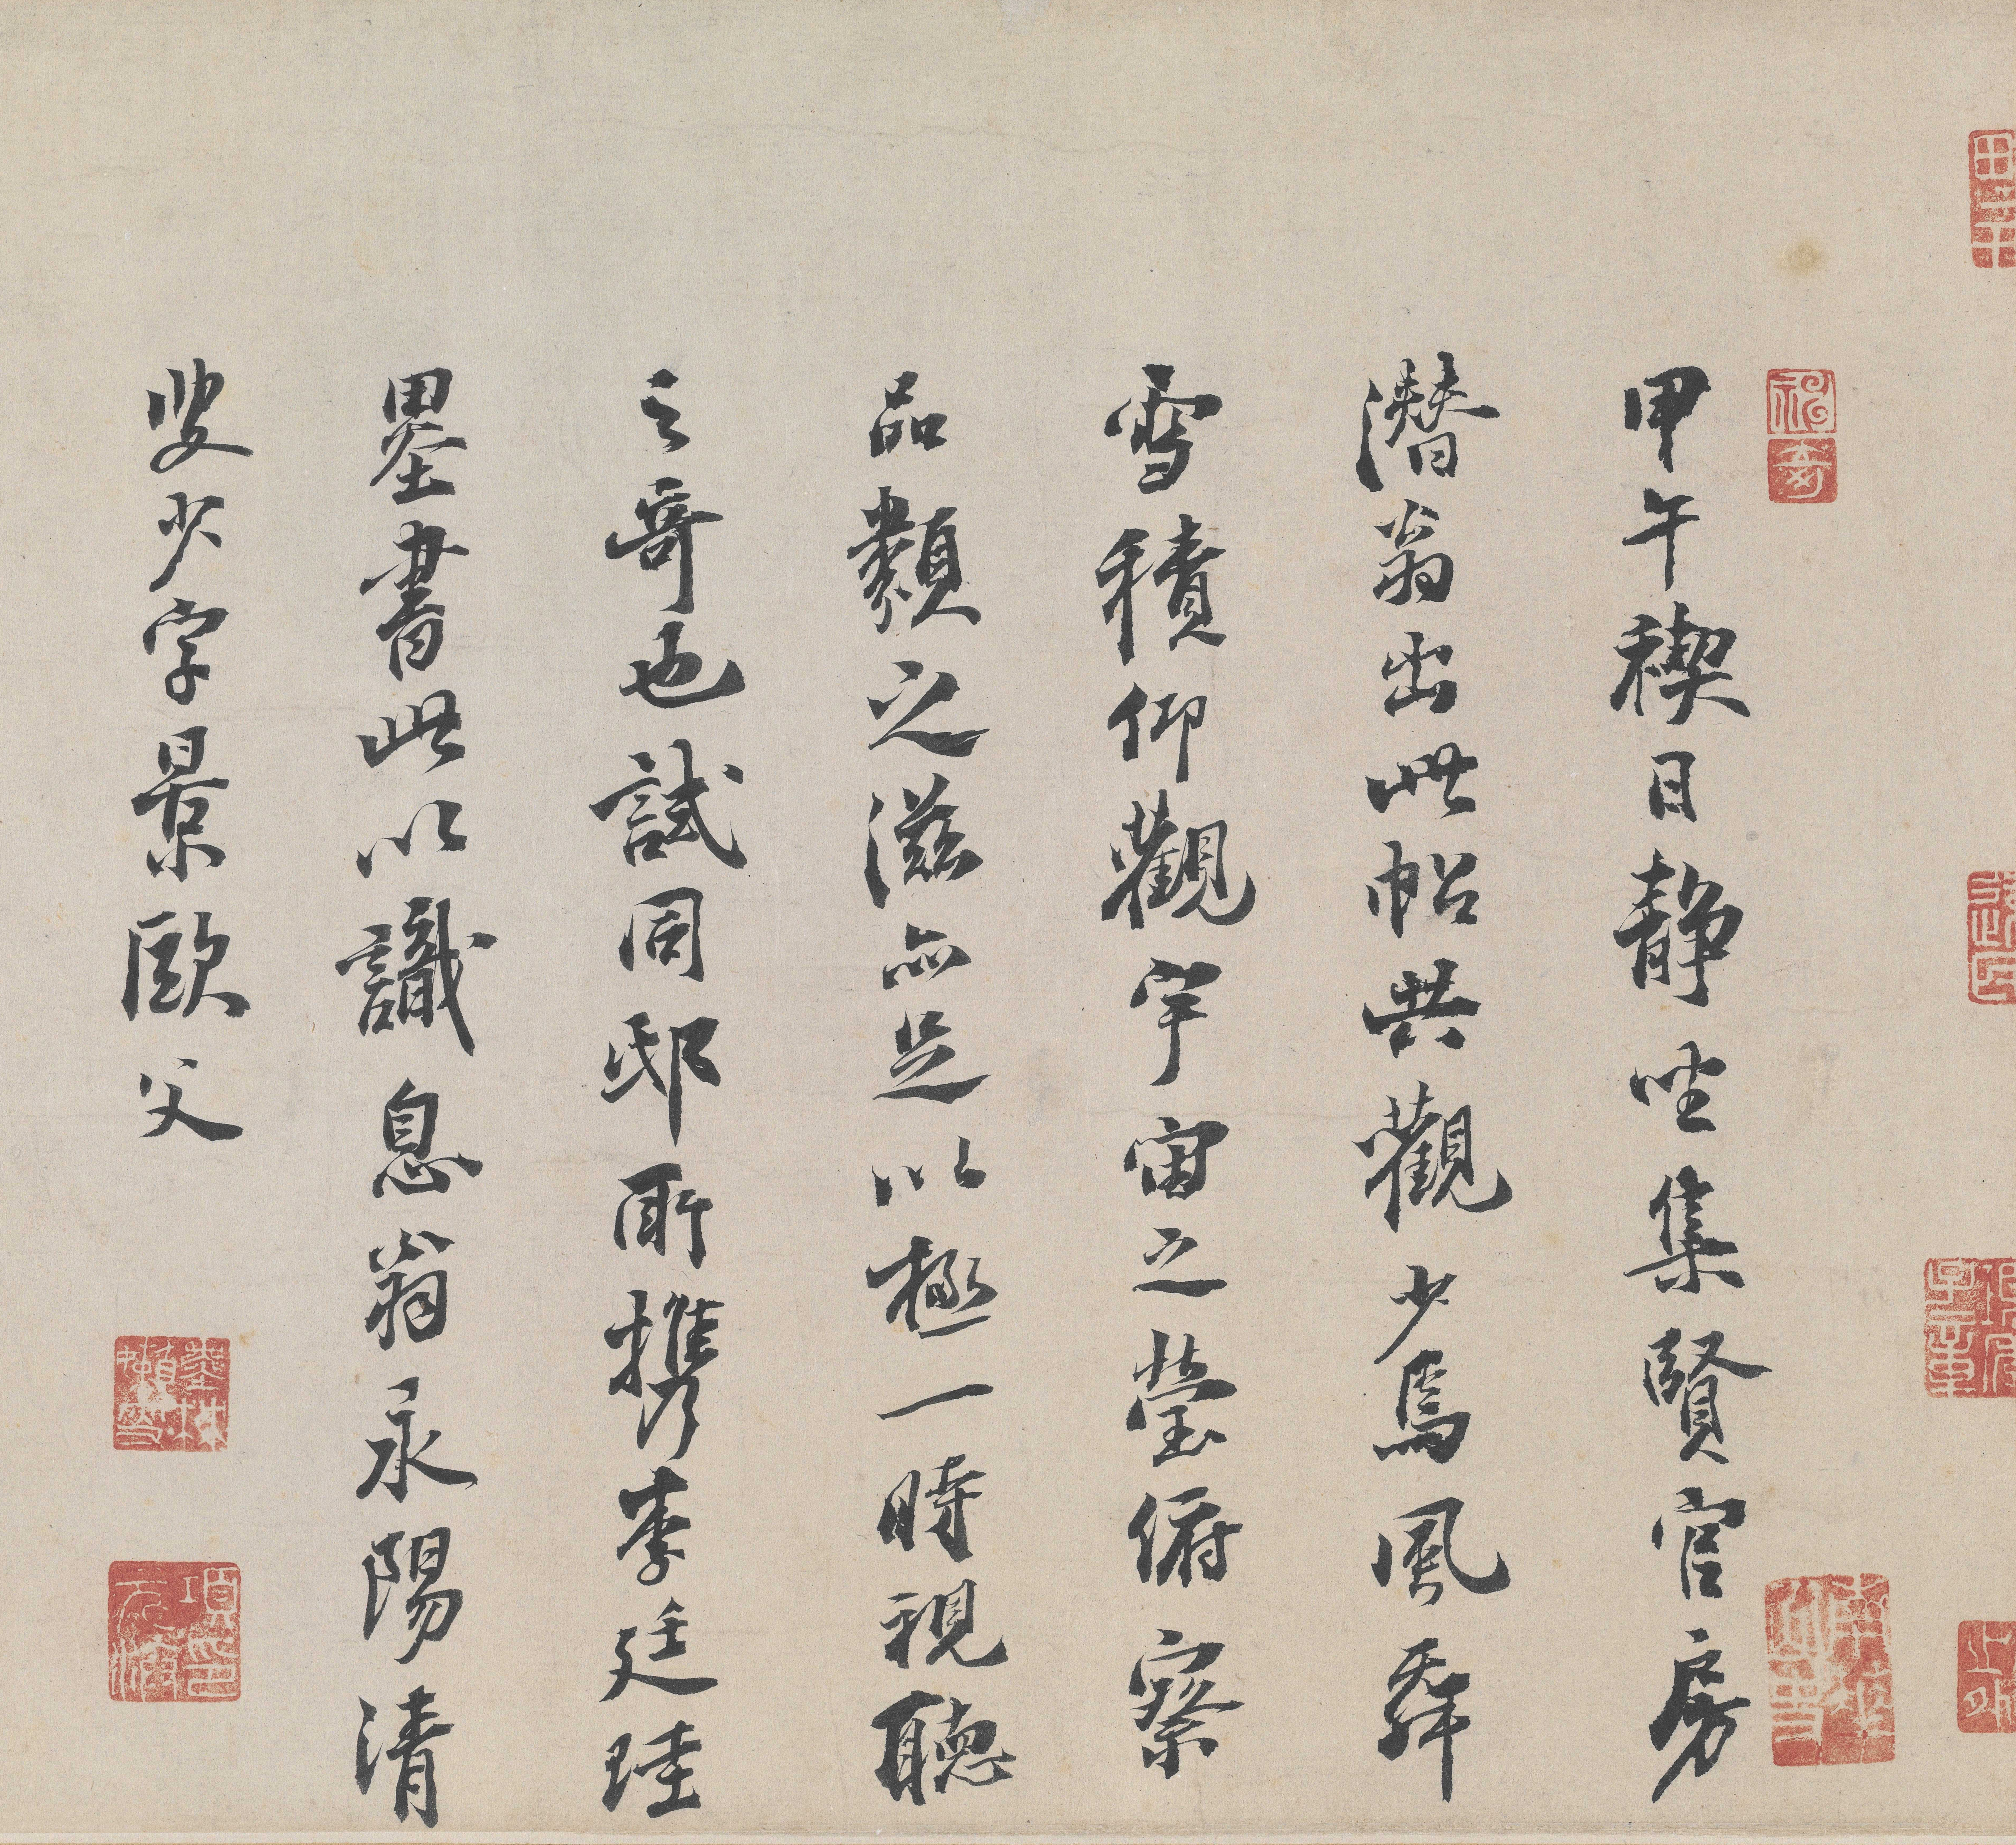 甲午禊日静坐集賢官房
潛翁出此帖共觀少焉風舞
雪積仰觀宇宙之瑩俯察
品類之滋亦足以極一時視聽
之奇也試周邸所攜李廷珪
墨書此以識息翁永陽清
叟少字景歐父